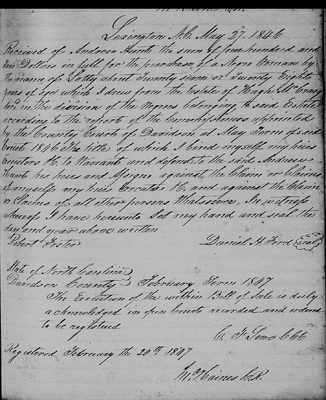 Lexington N.C. May 27. 1846
Received of Andrew Hunt the sum of five hundred and
Dollars in full for the purchase of a Negro Woman by
the name of Patty about Twenty seven or Twenty Eight
years of age which I drew from the Estate of Hugh
in the division of the Negroes belonging to said Estate
according to the report of the Commissioners appointed
by the County Court of Davidson at May Term of said
Court 1846 The title of which I bind myself my heirs
Executors &c to Warrant and defend to the said Andrew
Hunt his heirs and assigns against the Claim or Claims
of myself my heirs Executors &c and against the Claim
or Claims of all other persons Whatsoever. In witness
whereof I have hereunto Set my hand and seal the
day and year above written
Robert Foster Daniel H. Ford Seal
State of North Carolina
Davidson County February Term 1847
The Execution of the within Bill of Sale is duly
acknowledged in open Court recorded and ordered
to be registered
C. F. Lowe C.C.C.
Registered February the 20th 1847
Haines C.R.